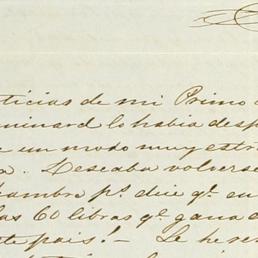 ticias de mi Primo
lo habia desp
e un modo muy estr
a. Deseaba volverse
hambra pr. dice qe. en
las 60 libras qe. gana
te pais! — Le he